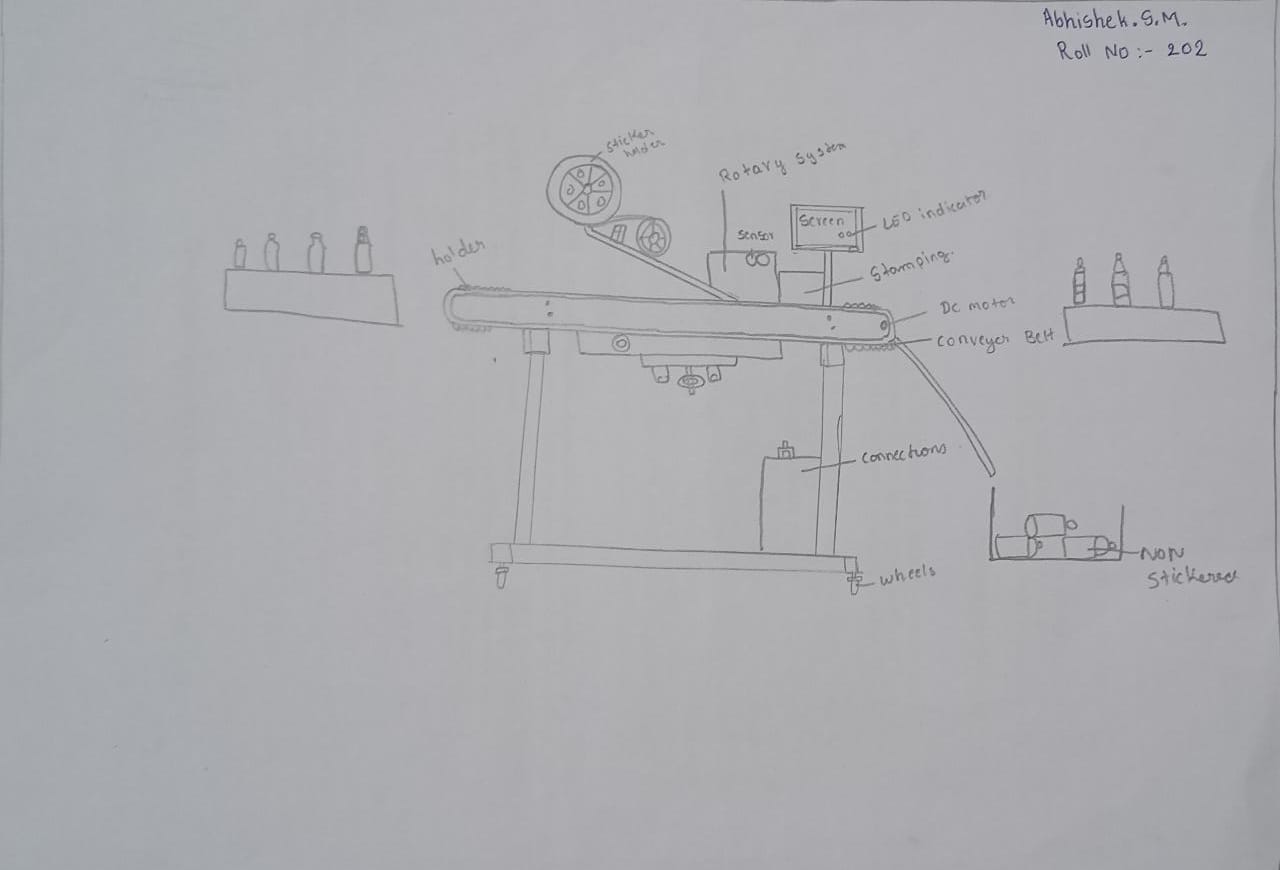 Abhishek.S.M.
Roll No :- 202
Sticker
holder
Rotary system
Sensor
Screen
LED indicator
holder
Stamping.
Dc motor
conveyer Belt
connections
wheels
NON
Stickered